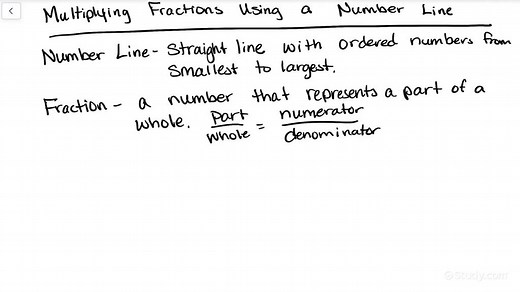 Multiplying Fractions Using a Number Line
Number Line - Straight line with ordered numbers from
smallest to largest.
Fraction - a number that represents a part of a
whole. part/whole = numerator/denominator
Study.com